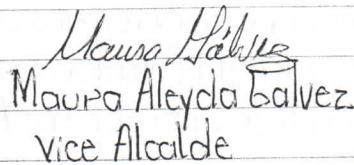 Maura Gálvez
Maura Aleyda Galvez
Vice Alcalde